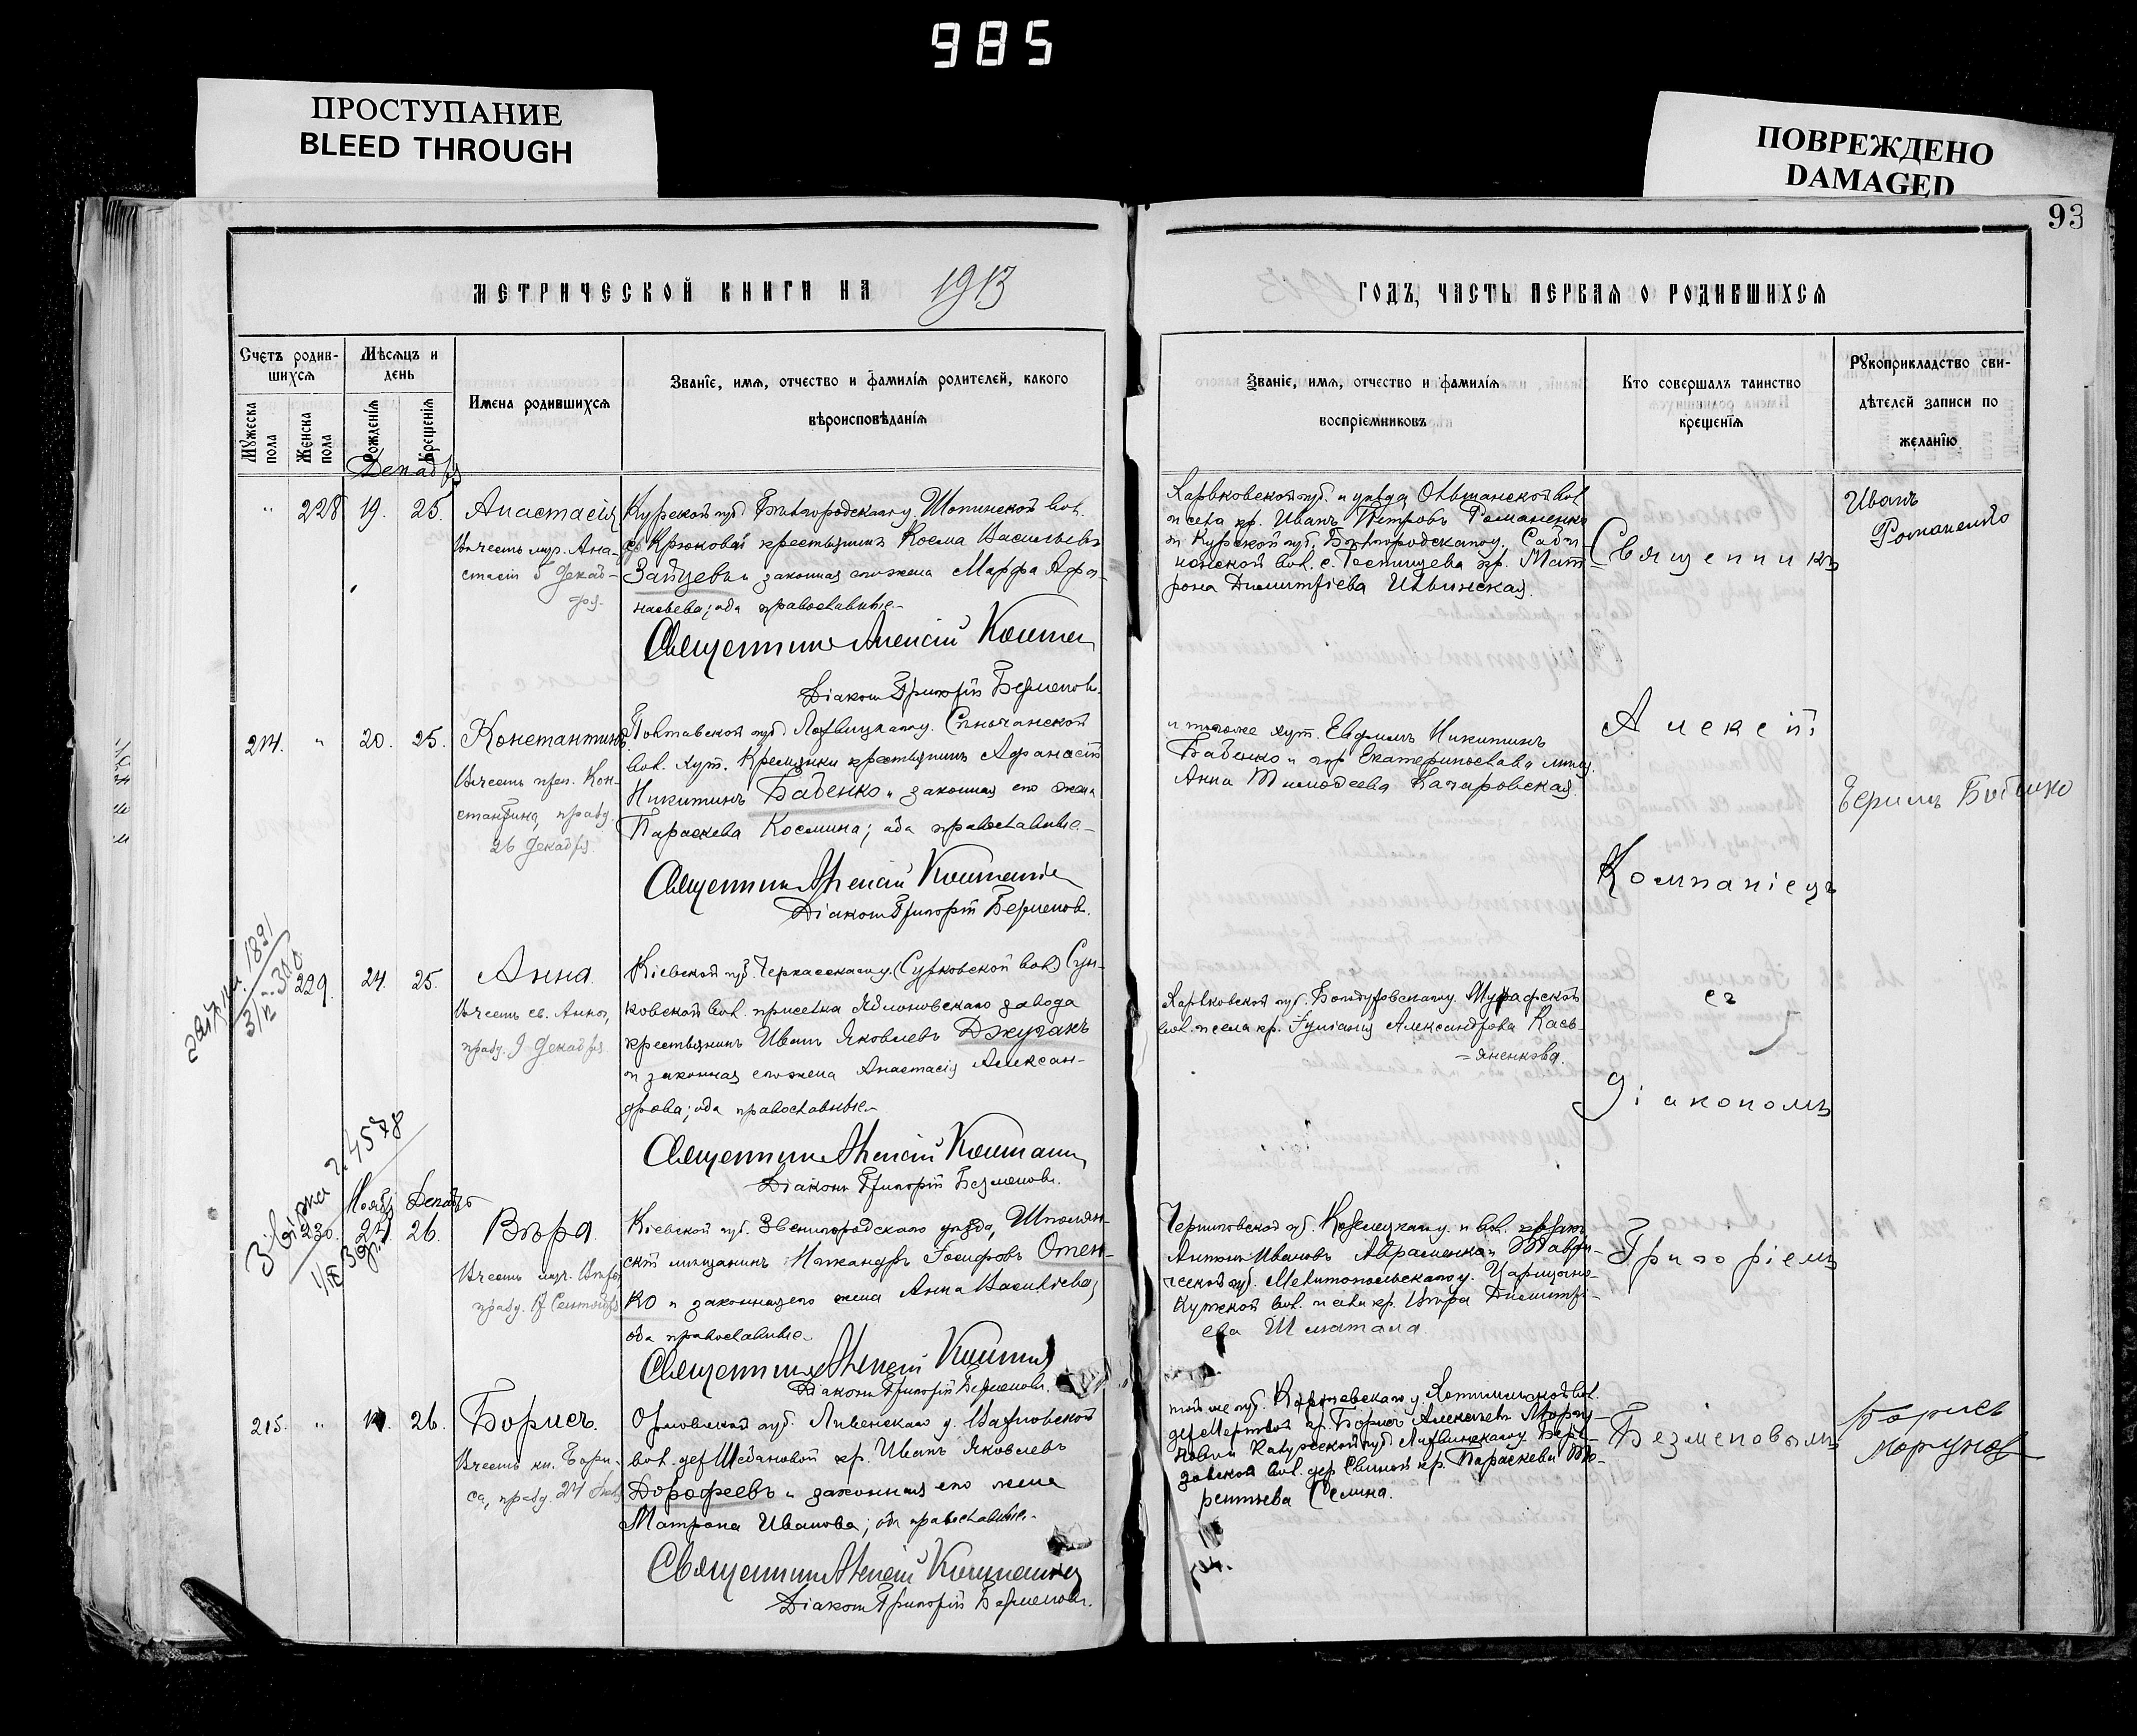 985
ПРОСТУПАНИЕ
BLEED THROUGH
ПОВРЕЖДЕНО
DAMAGED
93
МЕТРИЧЕСКОЙ КНИГИ НА 1913
ГОДЪ, ЧАСТЬ ПЕРВАЯ О РОДИВШИХСЯ
Счетъ родив-
шихся
Мужеска
пола
Женска
пола
Мѣсяцъ и
день
Рожденія
Крещенія
Имена родившихся
Званіе, имя, отчество и фамилія родителей, какого
вѣроисповѣданія
Званіе, имя, отчество и фамилія
воспріемниковъ
Кто совершалъ таинство
крещенія
Рукоприкладство сви-
дѣтелей записи по
желанію
Декабрь
" 228 19. 25. Анастасія
Въ честь муч. Ана-
стасіи Декаб-
ря.
Курской губ. Бѣлгородскаго у. Шопинской вол.
Крюковой крестьянинъ Косма Васильевъ
Зайцевъ и законная его жена Марфа Афа-
насьева; оба православные
Священникъ Алексій
Діаконъ Григорій Безменовъ.
Харьковской губ. и уѣзда Ольшанской вол.
и села кр. Иванъ Петровъ Романенко
и Курской губ. Бѣлгородскаго у. Сабы-
нонской вол. с. Гостищева кр. Мат-
рона Димитріева Ильинская.
Священникъ
Иванъ
Романенко
214. " 20. 25. Константинъ
Въ честь преп. Кон-
стантина, празд.
26 Декабря.
Полтавской губ. Лохвицкаго у. Сѣнчанской
вол. хут. Кремянки крестьянинъ Афанасій
Никитинъ Бабенко и законная его жена
Параскева Космина; оба православные
Священникъ Алексій
Діаконъ Григорій Безменовъ.
и того же хут. Евфимъ Никитинъ
Бабенко и гор. Екатеринослава мѣщ.
Анна Тимофеева Качаровская.
Алексій
Компаніецъ
229. 24. 25. Анна.
Въ честь св. Анны,
празд. 9 Декабря.
Кіевской губ. Черкасскаго у. (Сунковской вол.) Сун-
ковской вол. приселка Яблоновскаго завода
крестьянинъ Иванъ Яковлевъ Джуганъ
и законная его жена Анастасія Алексан-
дрова; оба православные
Священникъ Алексій
Діаконъ Григорій Безменовъ.
Харьковской губ. Богодуховскаго у. Мурафской
вол. и села кр. Іуліанія Александрова Кась-
=яненкова.
съ
діакономъ
Ноября Декабрь
230. 26. Вѣра.
Въ честь муч. Вѣры
празд. 17 Сентября
Кіевской губ. Звенигородскаго уѣзда, Шполян-
скій мѣщанинъ Никандръ Іосифовъ Отен-
ко и законная его жена Анна Васильева;
оба православные
Священникъ Алексій
Діаконъ Григорій Безменовъ.
Черниговской губ. Козелецкаго у. и вол. казакъ
Антонъ Ивановъ Авраменко и Таври-
ческой губ. Мелитопольскаго у. Царицыно-
Кутской вол. и села кр. Вѣра Димитрі-
ева Шматала.
Григоріемъ
215. " 26. Борисъ.
Въ честь кн. Бори-
са, празд. 24
Орловской губ. Ливенскаго у.
вол. дер. кр. Иванъ Яковлевъ
Дорофеевъ и законная его жена
Матрона Иванова; оба православные
Священникъ Алексій
Діаконъ Григорій Безменовъ.
той же губ.
кр. Борисъ Алексѣевъ
Калужской губ.
вол. дер. кр. Параскева
Селина.
Безменовымъ
Борисъ